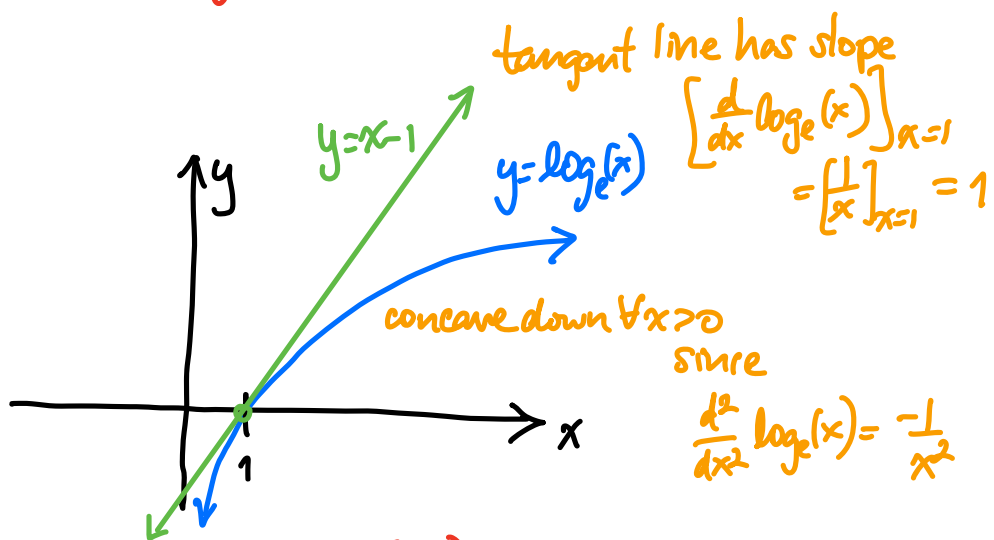 tangent line has slope
[d/dx logₑ(x)]ₓ₌₁
= [1/x]ₓ₌₁ = 1
y=x-1
y=logₑ(x)
y
concave down ∀x>0
since
d²/dx² logₑ(x) = -1/x²
x
1